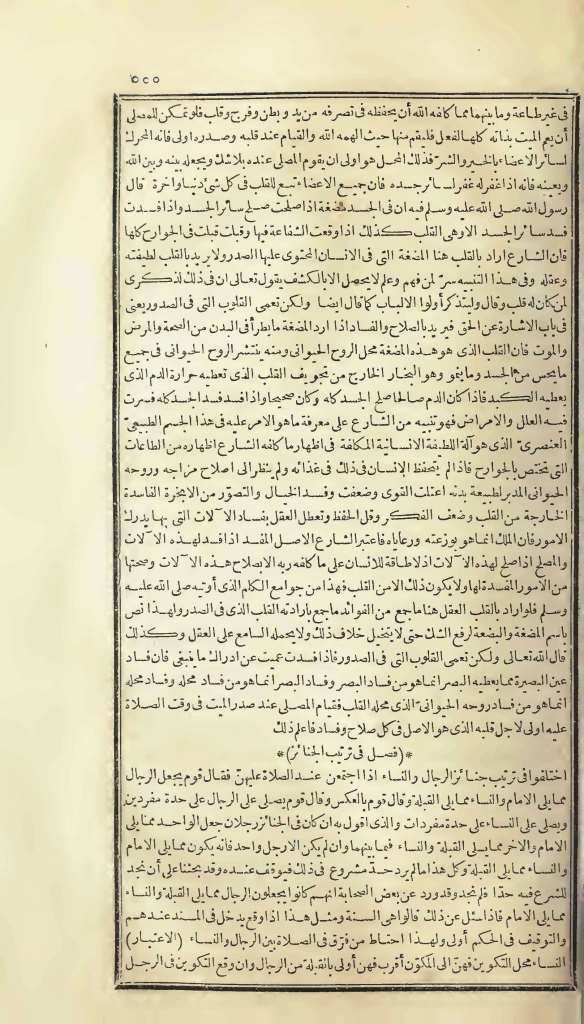 ٥٢٥
فى غير طاعة وما بينهما مما كافه الله أن يحفظه فى تصرفه من يد وبطن وفرج وقلب فلو تمكن للمصلى
أن يعم الميت بذاته كلها لفعل فليقم منها حيث الهمه الله والقيام عند قلبه وصدره اولى فانه المحرك
لسائر الاعضاء بالخير والشر فذلك المحل هو اولى ان يقوم المصلى عنده بلاشك ويجعله بينه وبين الله
ويعينه فانه اذا غفر له غفر لسائر جسده فان جميع الاعضاء تبع للقلب فى كل شئ دنيا واخرة قال
رسول الله صلى الله عليه وسلم فيه ان فى الجسد مضغة اذا صلحت صلح سائر الجسد واذا فسدت
فسد سائر الجسد الاوهى القلب كذلك اذا وقعت الشفاعة فيها وقبلت قبلت فى الجوارح كلها
فان الشارع اراد بالقلب هنا المضغة التى فى الانسان المحتوى عليها الصدر ولا يريد بالقلب لطيفته
وعقله وفى هذا التنبيه سرّ لمن فهم وعلم لا يحصل الا بالكشف يقول تعالى ان فى ذلك لذكرى
لمن كان له قلب وقال وليتذكر أولوا الالباب كما قال ايضا ولكن تعمى القلوب التى فى الصدور يعنى
فى باب الاشارة عن الحق فيريد بالصلاح والفساد اذا اراد المضغة ما يطرأ فى البدن من الصحة والمرض
والموت فان القلب الذى هو هذه المضغة محل الروح الحيوانى ومنه ينتشر الروح الحيوانى فى جميع
ما يحس من الجسد وما ينمو وهو البخار الخارج من تجويف القلب الذى تعطيه حرارة الدم الذى
يعطيه الكبد فاذا كان الدم صالحا صلح الجسد كله وكان صحيحا واذا فسد فسد الجسد كله فسرت
فيه العلل والامراض فهو تنبيه من الشارع على معرفة ما هو الامر عليه فى هذا الجسم الطبيعىّ
العنصرىّ الذى هو آلة اللطيفة الانسانية المكلفة فى اظهار ما كلفه الشارع اظهاره من الطاعات
التى تختص بالجوارح فاذا لم يتحفظ الإنسان فى ذلك فى غذائه ولم ينظر الى اصلاح مزاجه وروحه
الحيوانى المدبر لطبيعة بدنه اعتلت القوى وضعفت وفسد الخيال والتصوّر من الابخرة الفاسدة
الخارجة من القلب وضعف الفكر وقل الحفظ وتعطل العقل بفساد الآلات التى بها يدرك
الامور فان الملك انما هو بوزعته ورعاياه فاعتبر الشارع الاصل المفسد اذا فسد لهذه الآلات
والمصلح اذا صلح لهذه الآلات اذ لا طاقة للانسان على ما كلفه ربه الا بصلاح هذه الآلات وصحتها
من الامور المفسدة لها ولا يكون ذلك الا من القلب فهذا من جوامع الكلم الذى أوتيه صلى الله عليه
وسلم فلو اراد بالقلب العقل هنا ما جمع من الفوائد ما جمع بارادته القلب الذى فى الصدر ولهذا نص
باسم المضغة والبضعة لرفع الشك حتى لا يتخيل خلاف ذلك ولا يحمله السامع على العقل وكذلك
قال الله تعالى ولكن تعمى القلوب التى فى الصدور فاذا فسدت عميت عن ادراك ما ينبغى فان فساد
عين البصيرة مما يعطيه البصر انما هو من فساد البصر وفساد البصر انما هو من فساد محله وفساد محله
انما هو من فساد روحه الحيوانىّ الذى محله القلب فقيام المصلى عند صدر الميت فى وقت الصلاة
عليه اولى لاجل قلبه الذى هو الاصل فى كل صلاح وفساد فاعلم ذلك
*(فصل فى ترتيب الجنائز)*
اختلفوا فى ترتيب جنائز الرجال والنساء اذا اجتمعن عند الصلاة عليهنّ فقال قوم يجعل الرجال
مما يلى الامام والنساء مما يلى القبلة وقال قوم بالعكس وقال قوم يصلى على الرجال على حدة مفردين
ويصلى على النساء على حدة مفردات والذى اقول به ان كان فى الجنائز رجلان جعل الواحد مما يلى
الامام والاخر مما يلى القبلة والنساء فيما بينهما وان لم يكن الا رجل واحد فانه يكون مما يلى الامام
والنساء مما يلى القبلة وكل هذا ما لم يرد حدّ مشروع فى ذلك فيوقف عنده وقد بحثنا على أن نجد
للشرع فيه حدا فلم نجد وقد ورد عن بعض الصحابة انهم كانوا يجعلون الرجال مما يلى القبلة والنساء
مما يلى الامام فاذا سئل عن ذلك قالوا هى السنة ومثل هذا اذا وقع يدخل فى المسند عندهم
والتوقيف فى الحكم أولى ولهذا احتاط من فرّق فى الصلاة بين الرجال والنساء (الاعتبار)
النساء محل التكوين فهنّ الى المكوّن أقرب فهن أولى بالقبلة من الرجال وان وقع التكوين فى الرجل